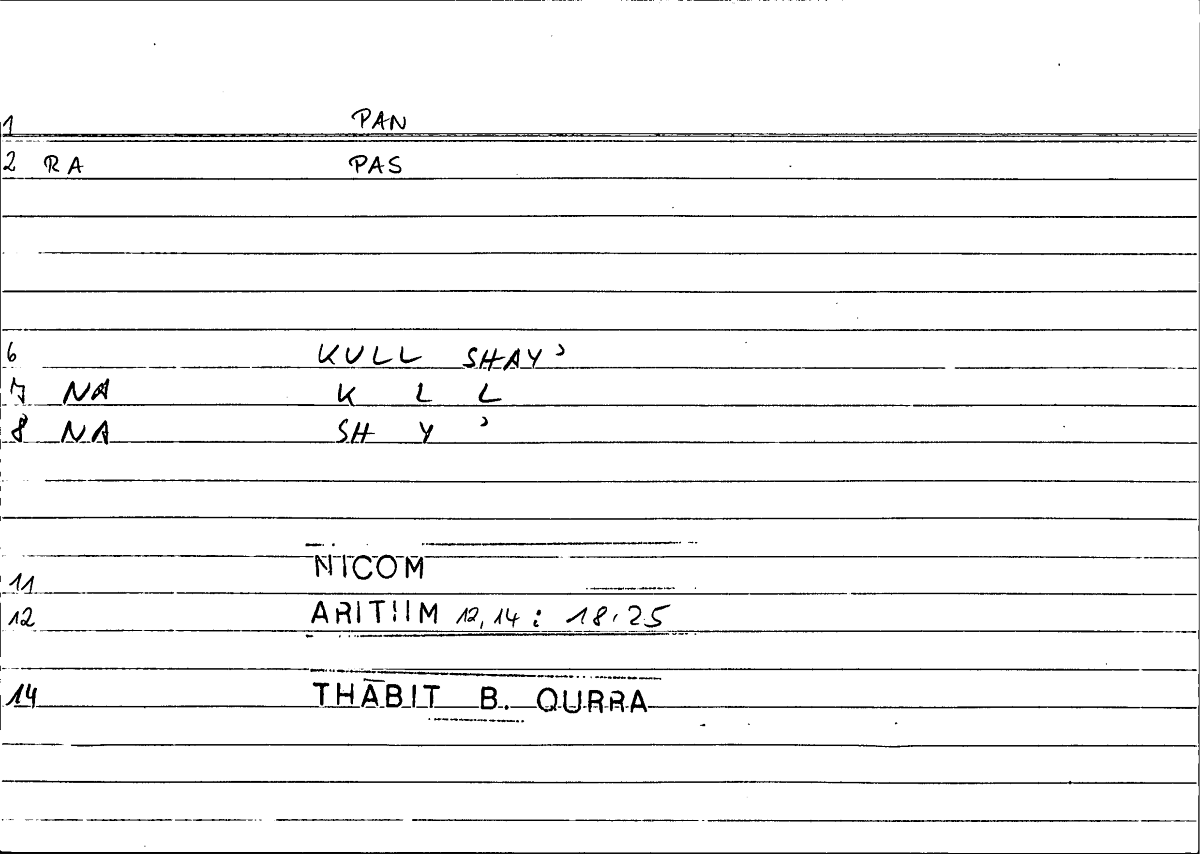 1 PAN
2 RA PAS
6 KULL SHAYʾ
7 NA K L L
8 NA SH Y ʾ
11 NICOM
12 ARITHM 12,14 : 18,25
14 THĀBIT B. QURRA